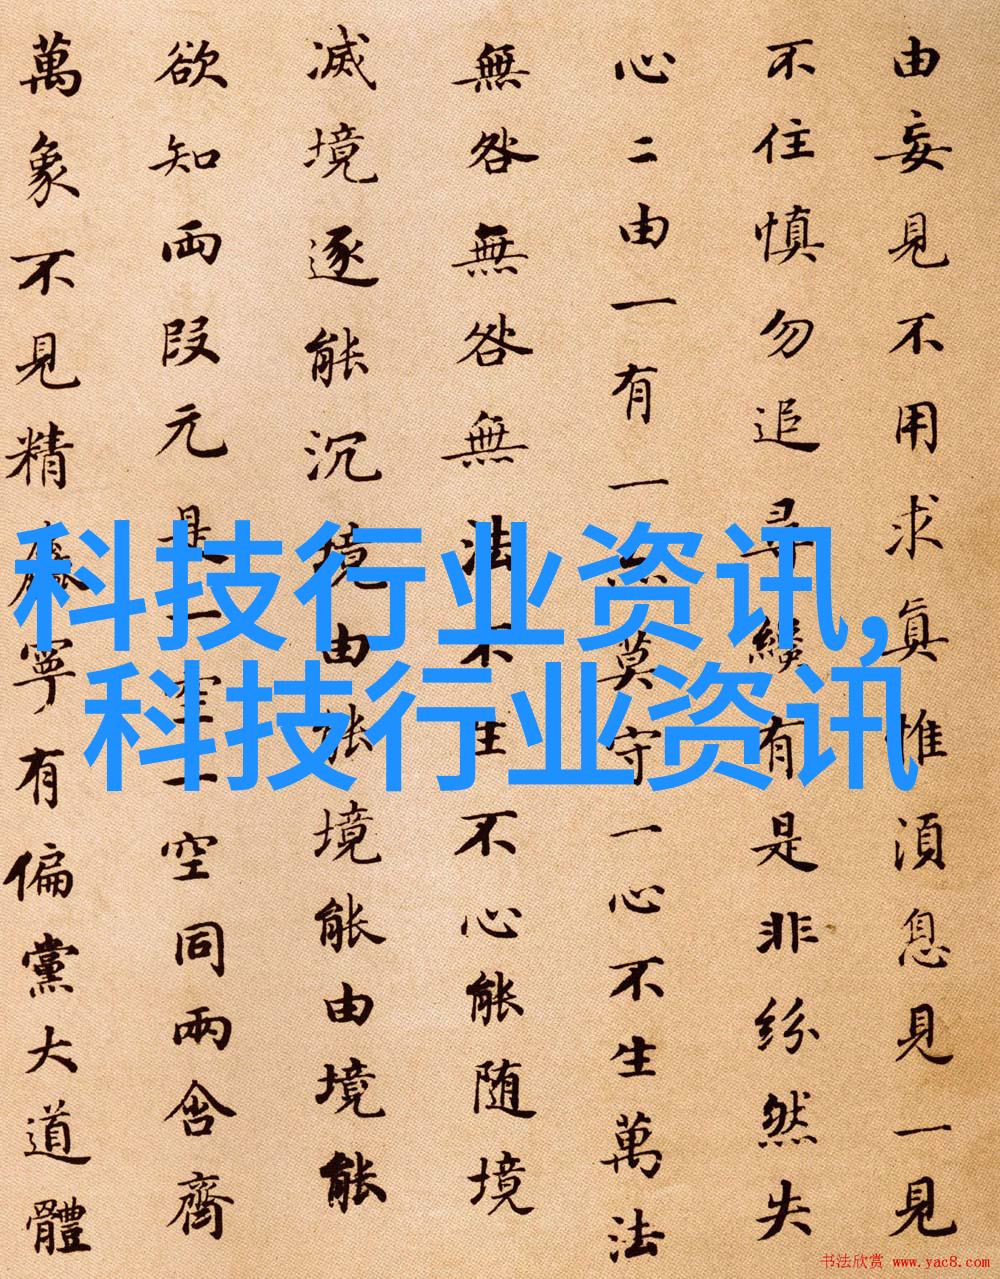 由妄見不用求眞惟湏息見一見
不住慎勿追尋纔有是非紛然失
心二由一有一莫守一心不生萬法
無咎無咎無法不生不心能随境
滅境逐能沉境由能境能由境能
欲知両段元是一空一空同兩含齊
萬象不見精寧有偏黨大道體
科技行业资讯,
科技行业资讯
书法欣赏 www.yac8.com